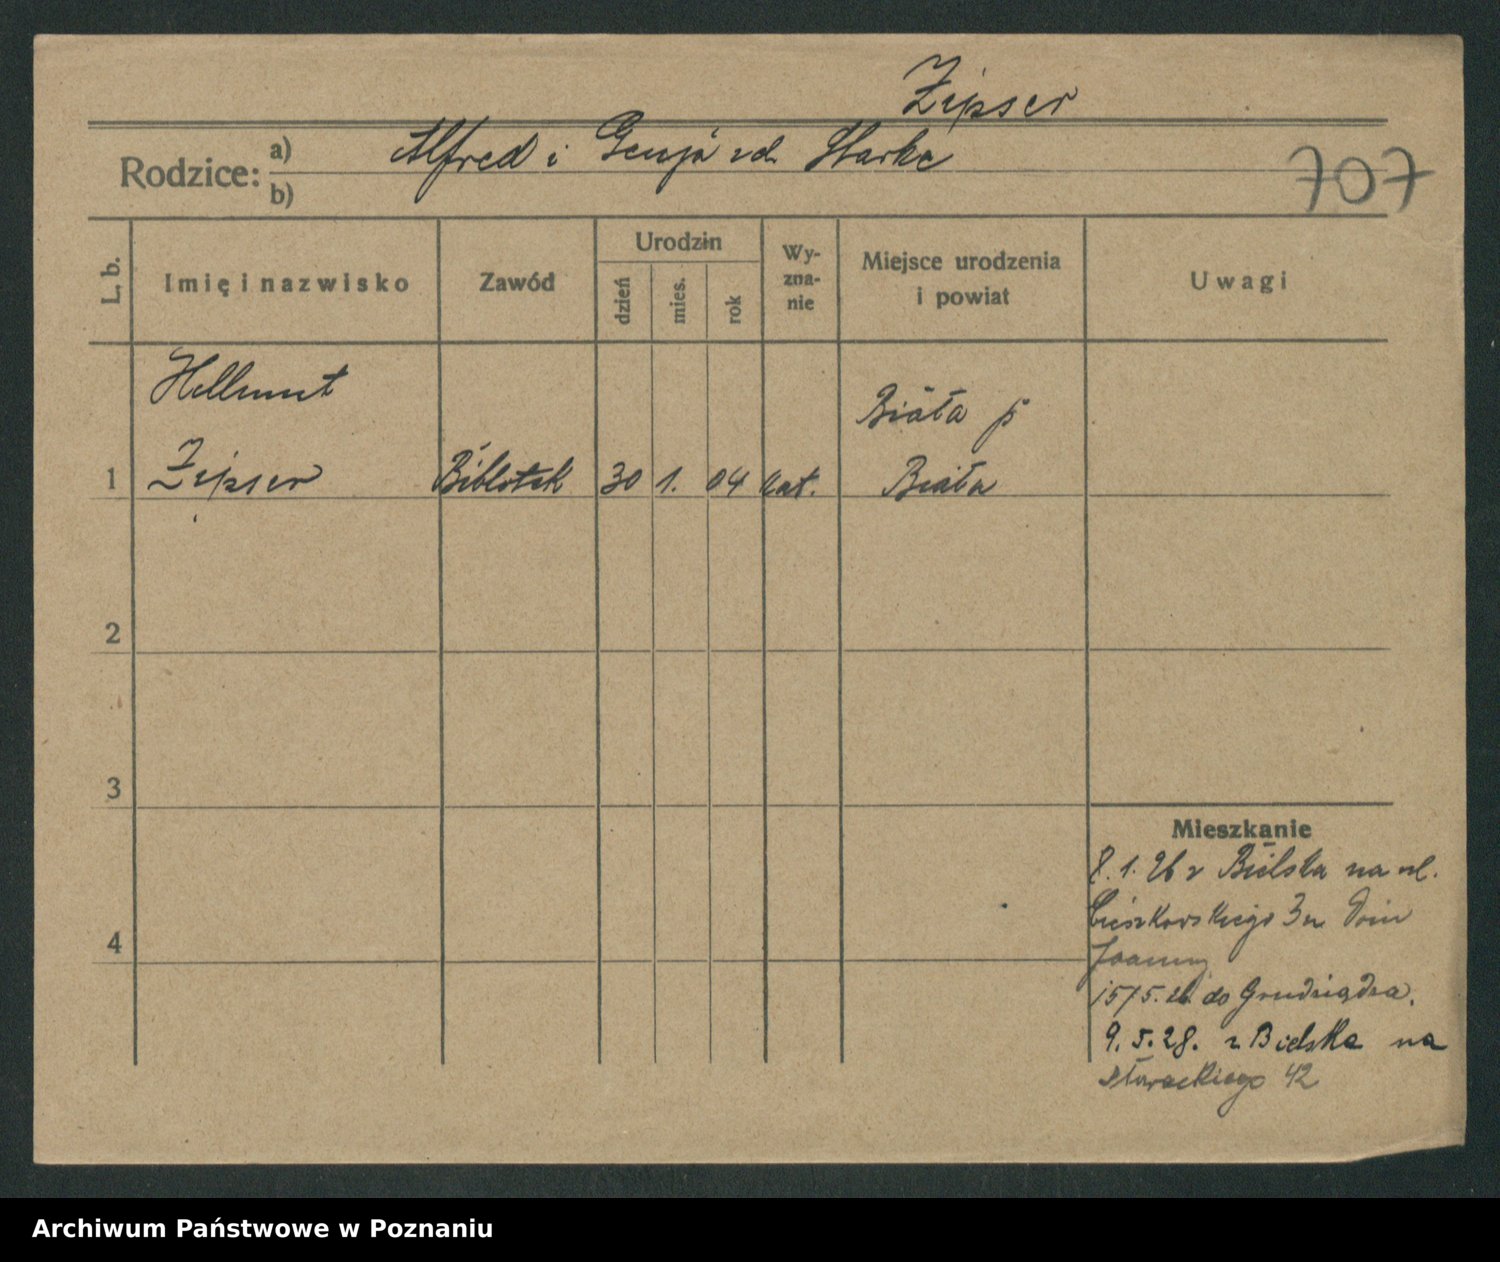 Zipser
Rodzice: a) Alfred i Genja zd. Starke
b)
707
L. b.
Imię i nazwisko
Zawód
Urodzin
dzień
mies.
rok
Wy-
zna-
nie
Miejsce urodzenia
i powiat
Uwagi
Hellmut
Biała p
1 Zipser Biblotek 30 1. 04 kat. Biała
2
3
4
Mieszkanie
8. 1. 26 z Bielska na ul.
Cieszkowskiego 3 u
Joanny
15/5. 26 do Grudziądza.
9. 5. 28. z Bielska na
Słowackiego 42
Archiwum Państwowe w Poznaniu